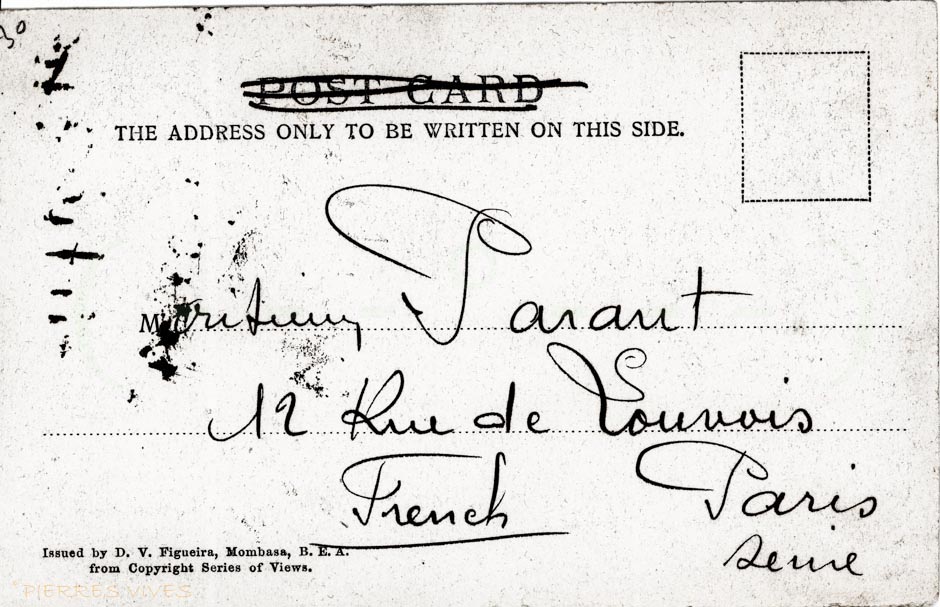 30
POST CARD
THE ADDRESS ONLY TO BE WRITTEN ON THIS SIDE.
Monsieur Parant
12 Rue de Louvois
French Paris
Seine
Issued by D. V. Figueira, Mombasa, B. E. A.
from Copyright Series of Views.
*PIERRES VIVES